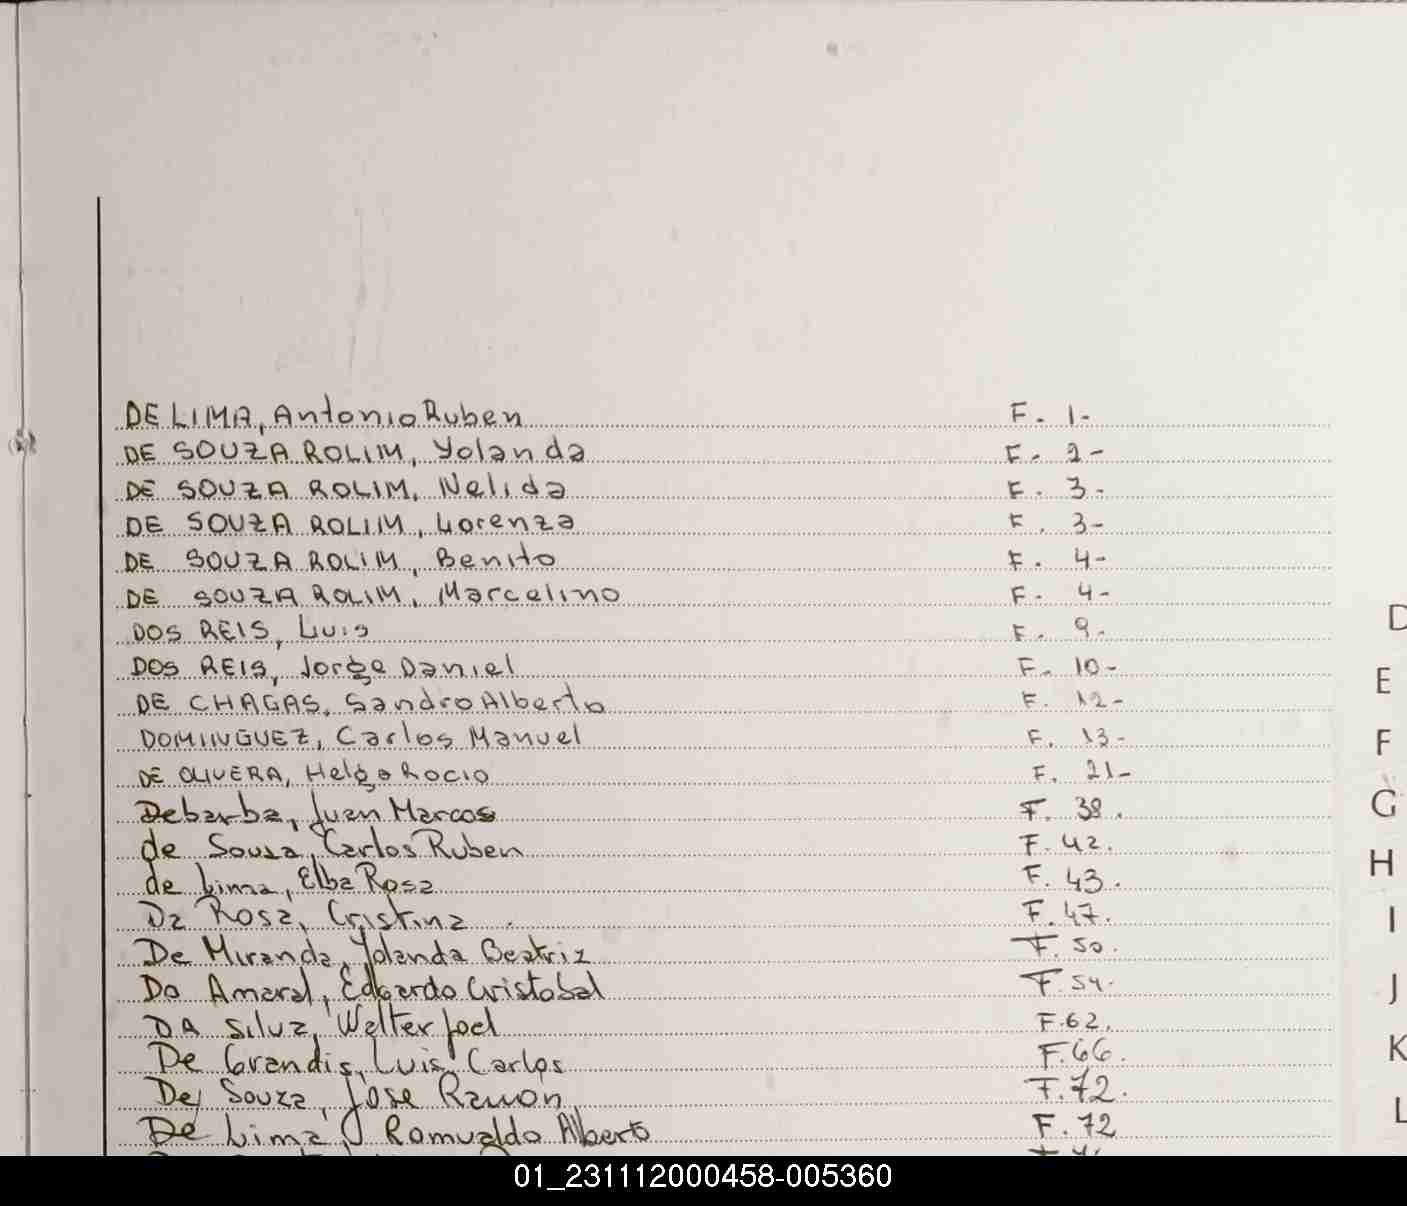 DE LIMA, Antonio Ruben F. 1-
DE SOUZA ROLIM, Yolanda F. 2-
DE SOUZA ROLIM, Nelida F. 3-
DE SOUZA ROLIM, Lorenza F. 3-
DE SOUZA ROLIM, Benito F. 4-
DE SOUZA ROLIM, Marcelino F. 4-
DOS REIS, Luis F. 9-
DOS REIS, Jorge Daniel F. 10-
DE CHAGAS, Sandro Alberto F. 12-
DOMINGUEZ, Carlos Manuel F. 13-
DE OLIVERA, Helga Rocio F. 21-
Debarba, Juan Marcos F. 38.
de Sousa, Carlos Ruben F. 42.
de Lima, Elba Rosa F. 43.
Da Rosa, Cristina F. 47.
De Miranda, Yolanda Beatriz F. 50.
Do Amaral, Edgardo Cristobal F. 54.
DA Silva, Walter Joel F. 62.
De Grandis, Luis Carlos F. 66.
De Souza, Jose Ramon F. 72.
De Lima, Romualdo Alberto F. 72
D
E
F
G
H
I
J
K
L
01_231112000458-005360